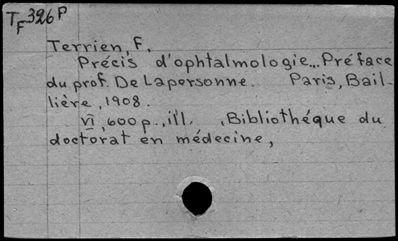 TF 326 P
Terrien, F.
Précis d'ophtalmologie... Préface
du prof. De Lapersonne. Paris, Bail-
lière, 1908.
VI, 600 p., ill. , Bibliothéque du
doctorat en médecine,